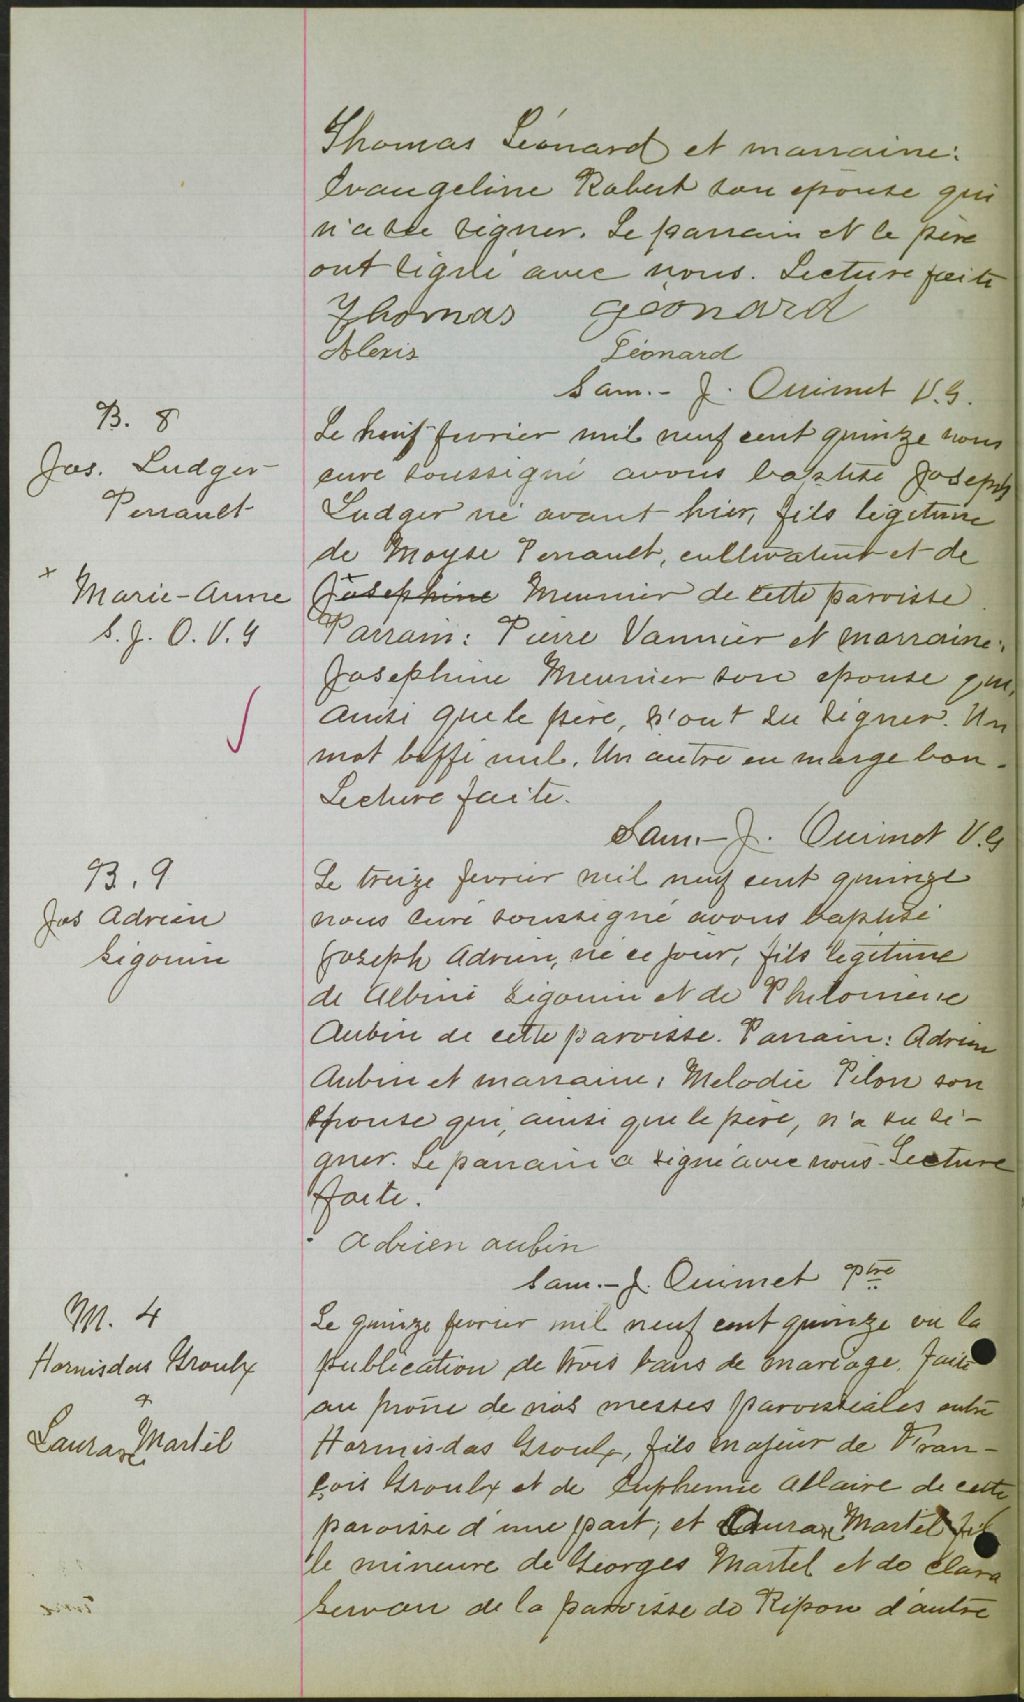 Thomas Léonard et marraine:
Evangeline Robert son epouse qui
n'a su signer. Le parrain et le père
ont signé avec nous. Lecture faite
Thomas Léonard
Alexis Léonard
Sam.- J. Ouimet V.G.
B. 8
Jos. Ludger
Perrault
Le neuf fevrier mil neuf cent quinze nous
curé soussigné avons baptisé Joseph
Ludger né avant hier, fils légitime
de Moyse Perrault, cultivateur et de
+ Marie-Anne
S. J. O. V. G
Josephine Meunier de cette paroisse.
Parrain: Pierre Vannier et marraine:
Josephine Meunier son epouse qui,
ainsi que le père, n'ont su signer. Un
mot biffé nul. Un autre en marge bon.
Lecture faite.
Sam.- J. Ouimet V.G
B. 9
Jos Adrien
Sigouin
Le treize fevrier mil neuf cent quinze
nous curé soussigné avons baptisé
Joseph Adrien, né ce jour, fils légitime
de Albini Sigouin et de Philomene
Aubin de cette paroisse. Parrain: Adrien
Aubin et marraine: Melodie Pilon son
epouse qui, ainsi que le père, n'a su si-
gner. Le parrain a signé avec nous. Lecture
faite.
Adrien aubin
Sam.- J. Ouimet Ptre
M. 4
Hormisdas Groulx
&
Laura Martel
Le quinze fevrier mil neuf cent quinze vu la
publication de trois bans de mariage faite
au prône de nos messes paroissiales entre
Hormisdas Groulx, fils majeur de Fran-
çois Groulx et de Euphemie Allaire de cette
paroisse d'une part; et Laura Martel fil
le mineure de Georges Martel et de Clara
Servan de la paroisse de Ripon d'autre